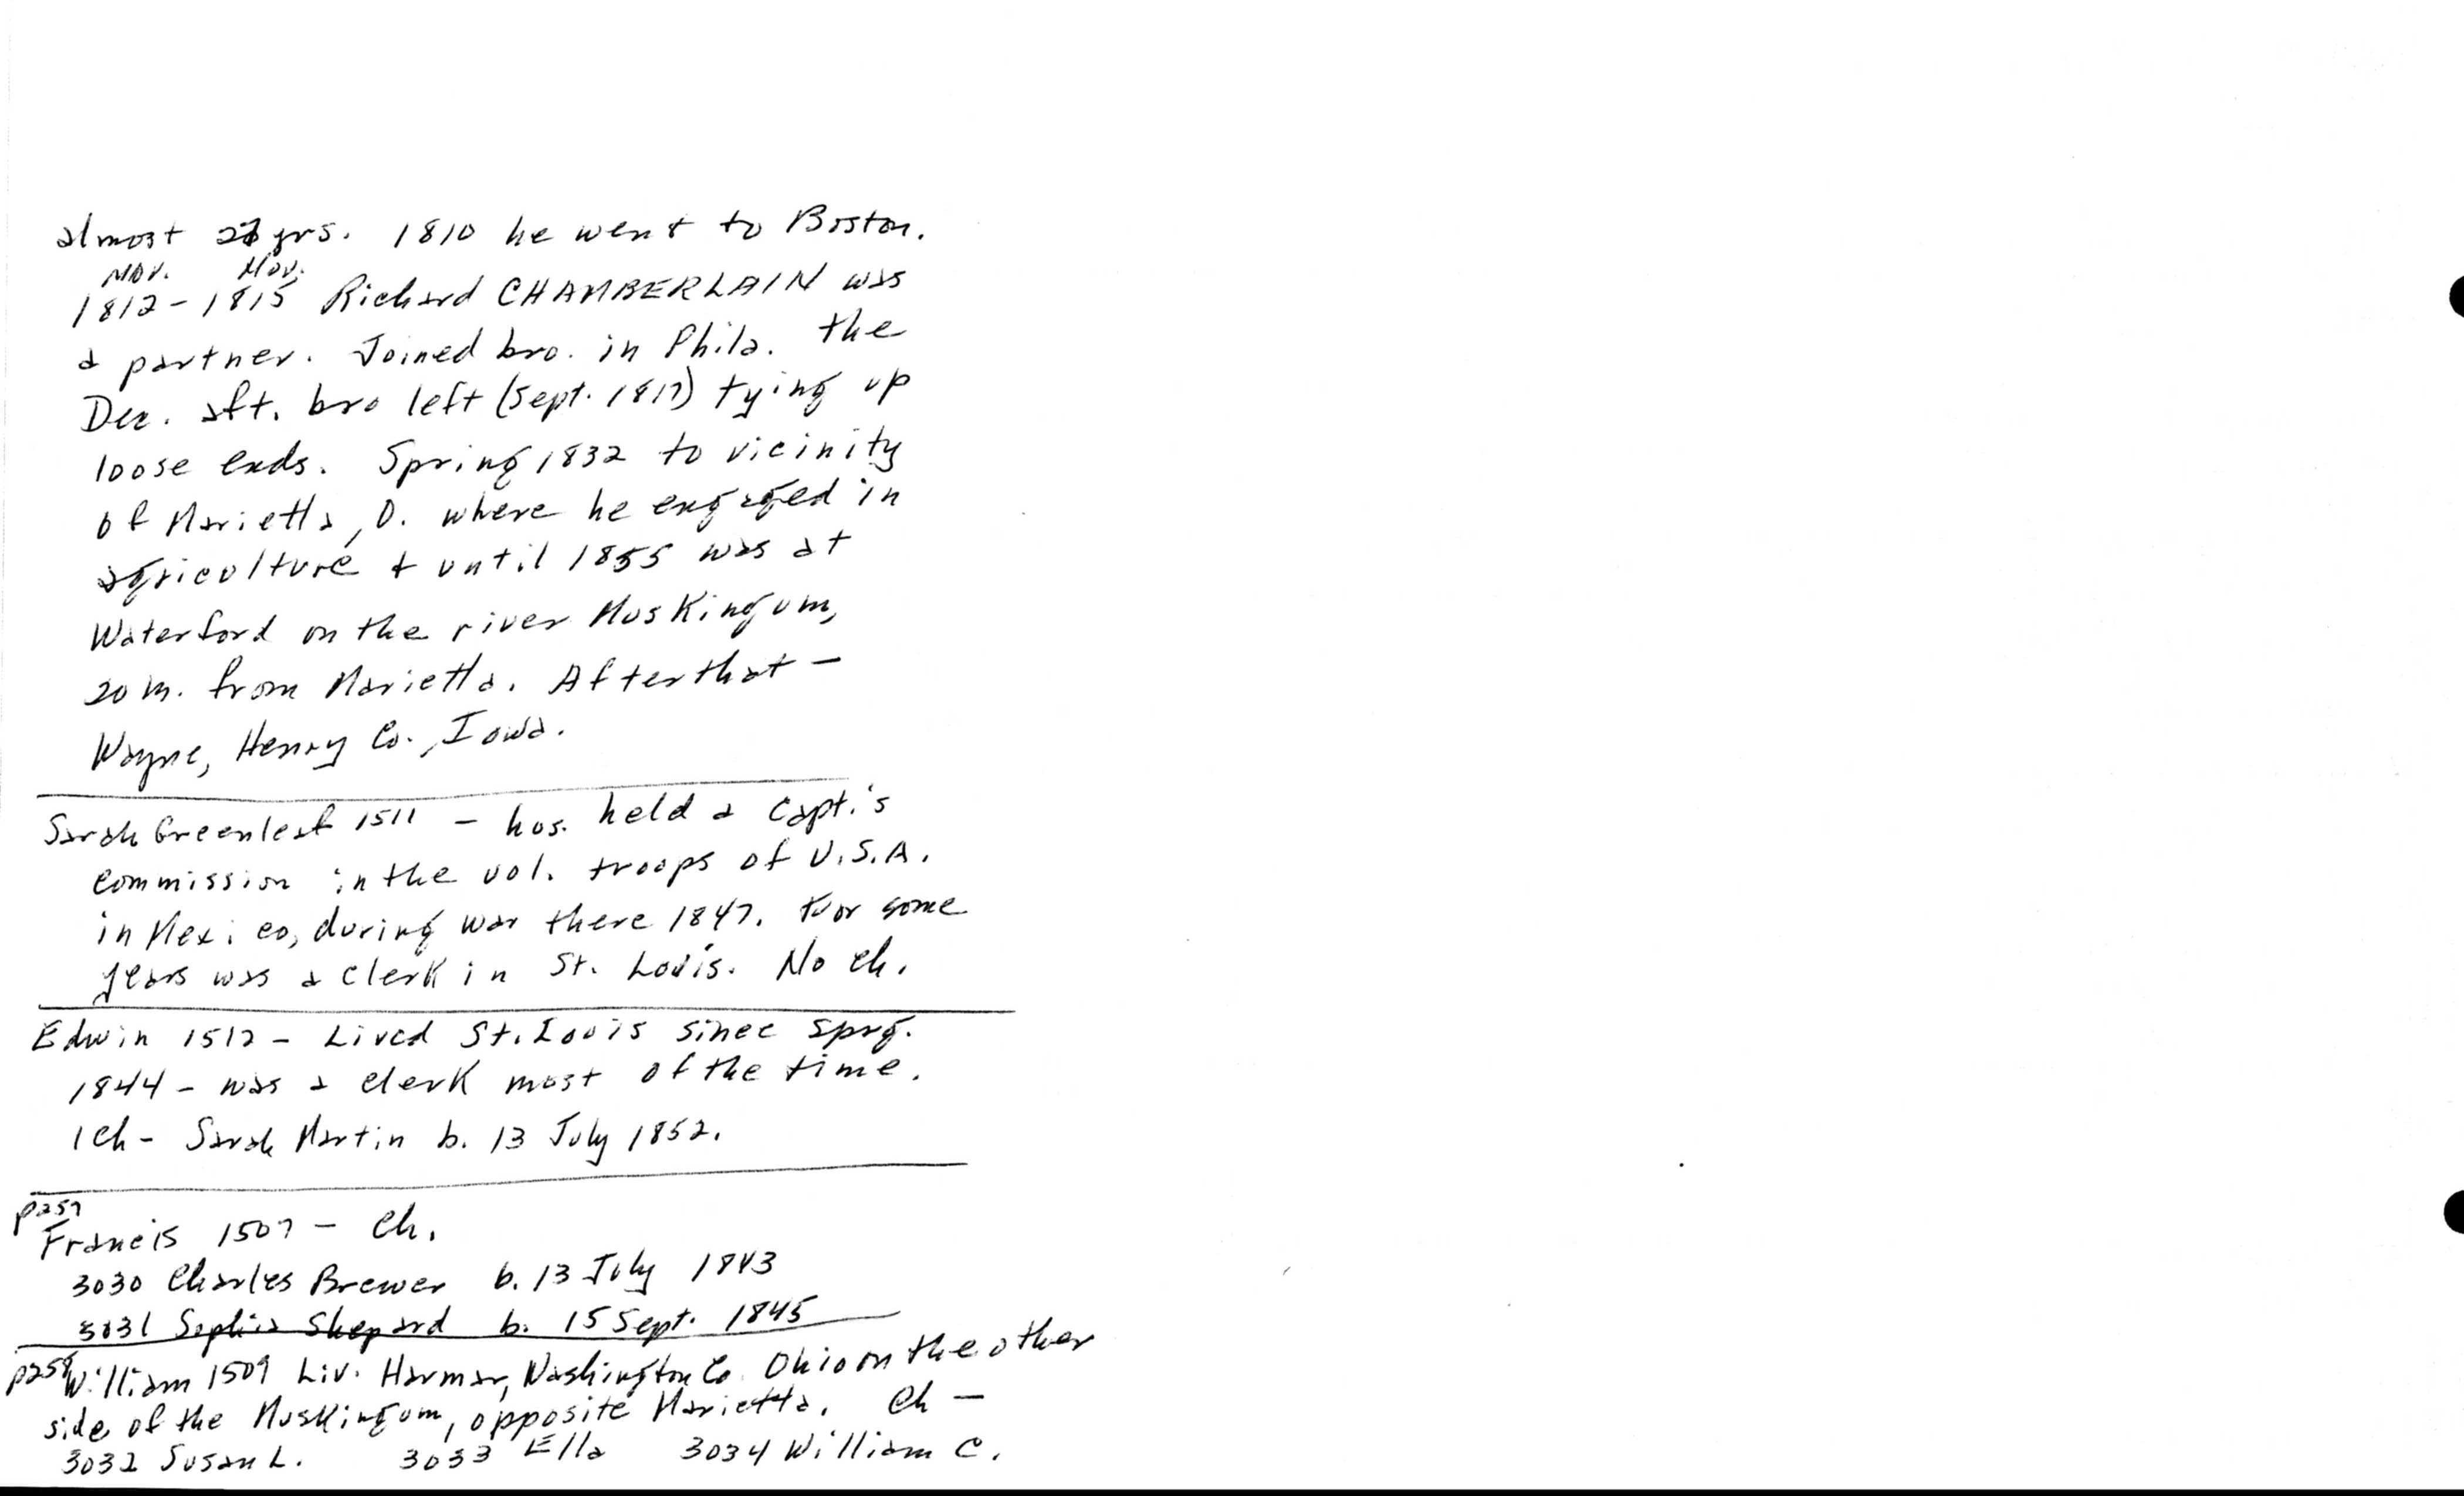 almost 27 yrs. 1810 he went to Boston.
Nov. Nov.
1812-1815 Richard CHAMBERLAIN was
a partner. Joined bro. in Phila. the
Dec. aft. bro left (Sept. 1817) tying up
loose ends. Spring 1832 to vicinity
of Marietta, O. where he engaged in
agriculture & until 1855 was at
Waterford on the river Muskingum,
20 m. from Marietta. After that —
Wayne, Henry Co., Iowa.
Sarah Greenleaf 1511 — hus. held a Capt.'s
commission in the vol. troops of U.S.A.
in Mexico, during war there 1847. For some
years was a clerk in St. Louis. No ch.
Edwin 1512 — Lived St. Louis since sprg.
1844 - was a clerk most of the time.
1 ch - Sarah Martin b. 13 July 1852.
p257
Francis 1507 — Ch.
3030 Charles Brewer b. 13 July 1843
3031 Sophia Shepard b. 15 Sept. 1845
p258 William 1509 Liv. Harmar, Washington Co. Ohio on the other
side of the Muskingum, opposite Marietta. Ch —
3032 Susan L. 3033 Ella 3034 William C.